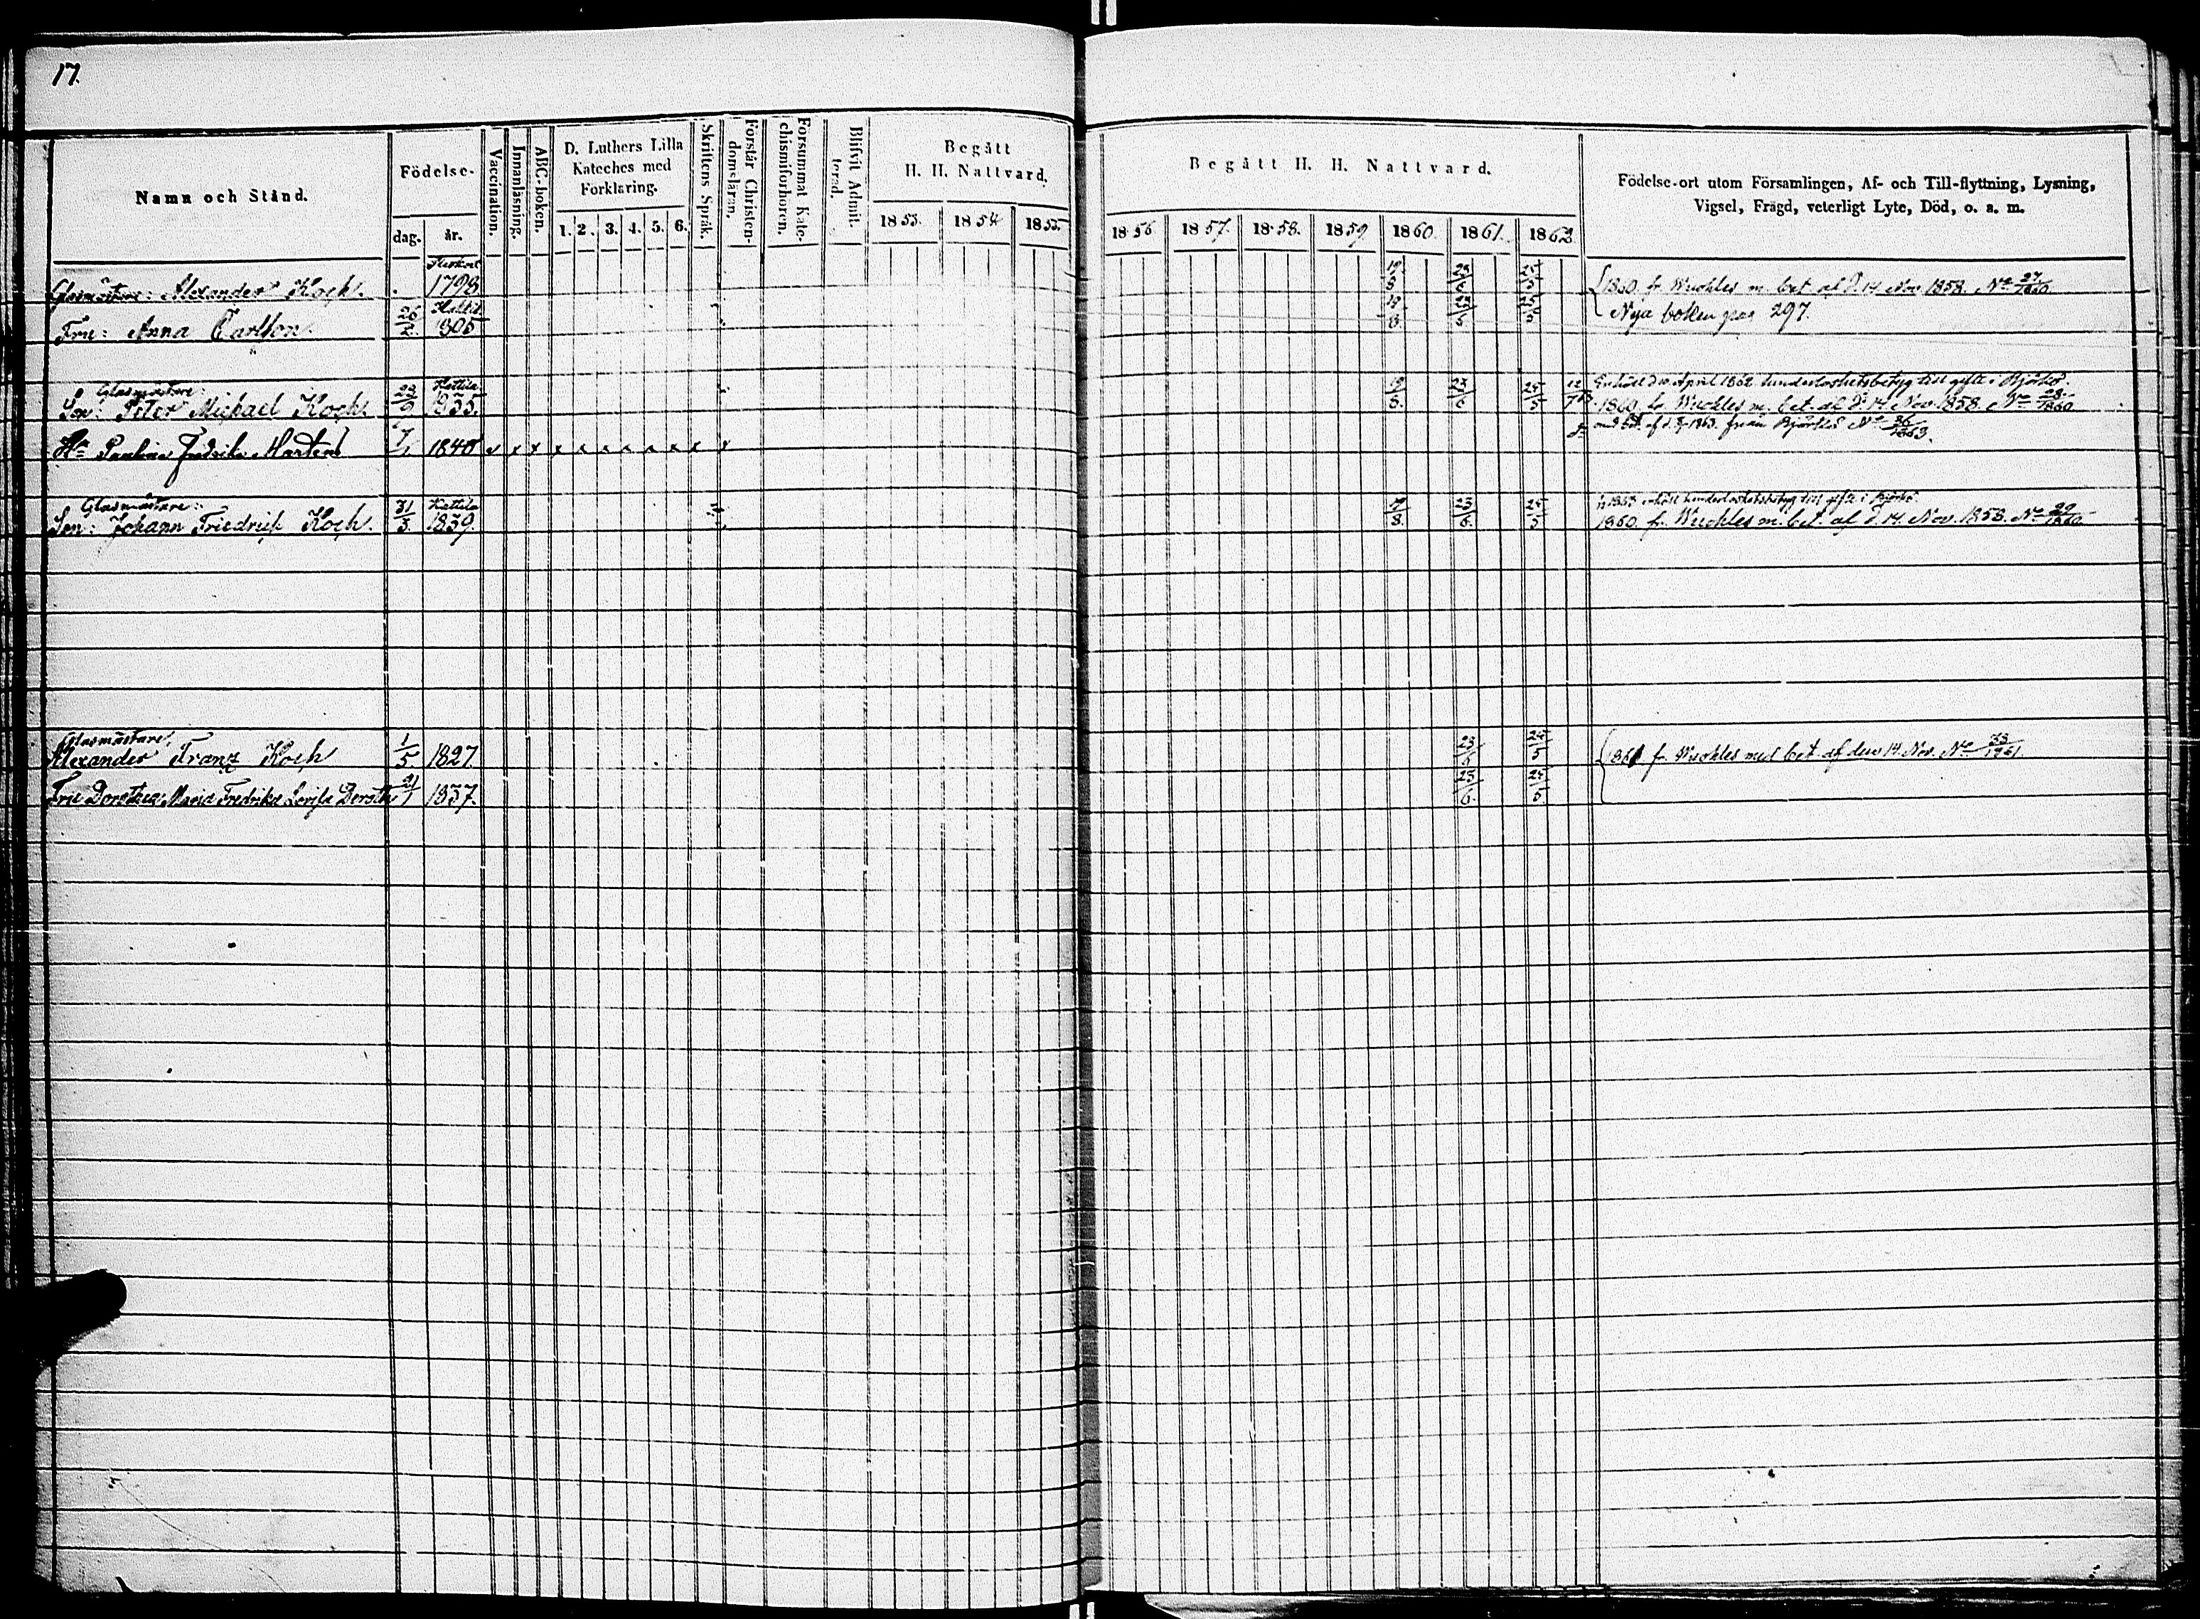 17.
Namn och Stånd.
Födelse-
dag.
år.
Vaccination.
Innanläsning.
ABC-boken.
D. Luthers Lilla
Kateches med
Förklaring.
1. 2. 3. 4. 5. 6.
Skriftens Språk.
Förstår Christen-
domsläran.
Försummat Kate-
chismiförhören.
Blifvit Admit-
terad.
Begått
H. H. Nattvard.
1853. 1854 1855.
Begått H. H. Nattvard.
1856 1857. 1858. 1859 1860. 1861. 1862
Födelse-ort utom Församlingen, Af- och Till-flyttning, Lysning,
Vigsel, Frägd, veterligt Lyte, Död, o. s. m.
Glasmästare: Alexander Koch. 1798 19/8 23/6 25/5 1860 fr. m. bet. af d. 14 Nov. 1858. No 27/1860
Fru: Anna Carlson 1805 19/8 23/6 25/5 Nya boken pag 297.
Glasmästare:
Son: Peter Michael Koch. 22/9 Kattila 1835. 19/8 23/6 25/5 1860 fr. m. bet. af d. 14 Nov. 1858. No 28/1860
April 1862 hinderlöshetsbetyg till gifte i Björkö.
med bet. af d. 1863 från Björkö No 36/1863.
Hu Paulina Fredrika Martens 7/1 1840 v x x x x x x x x x x
Glasmästare:
Son: Johann Friedrich Koch. 31/3 Kattila 1839. 23/6 25/5
hinderlöshetsbetyg till gifte i Björkö
1860 fr. m. bet. af d. 14. Nov. 1858. No 29/1860
Glasmästare,
Alexander Franz Koch 1/5 1827. 23/6 25/5 1861 fr. med bet. af den 14. Nov. No 73/1861
Fru Dorothea Maria Fredrika Lovisa 21/1 1837. 23/6 25/5